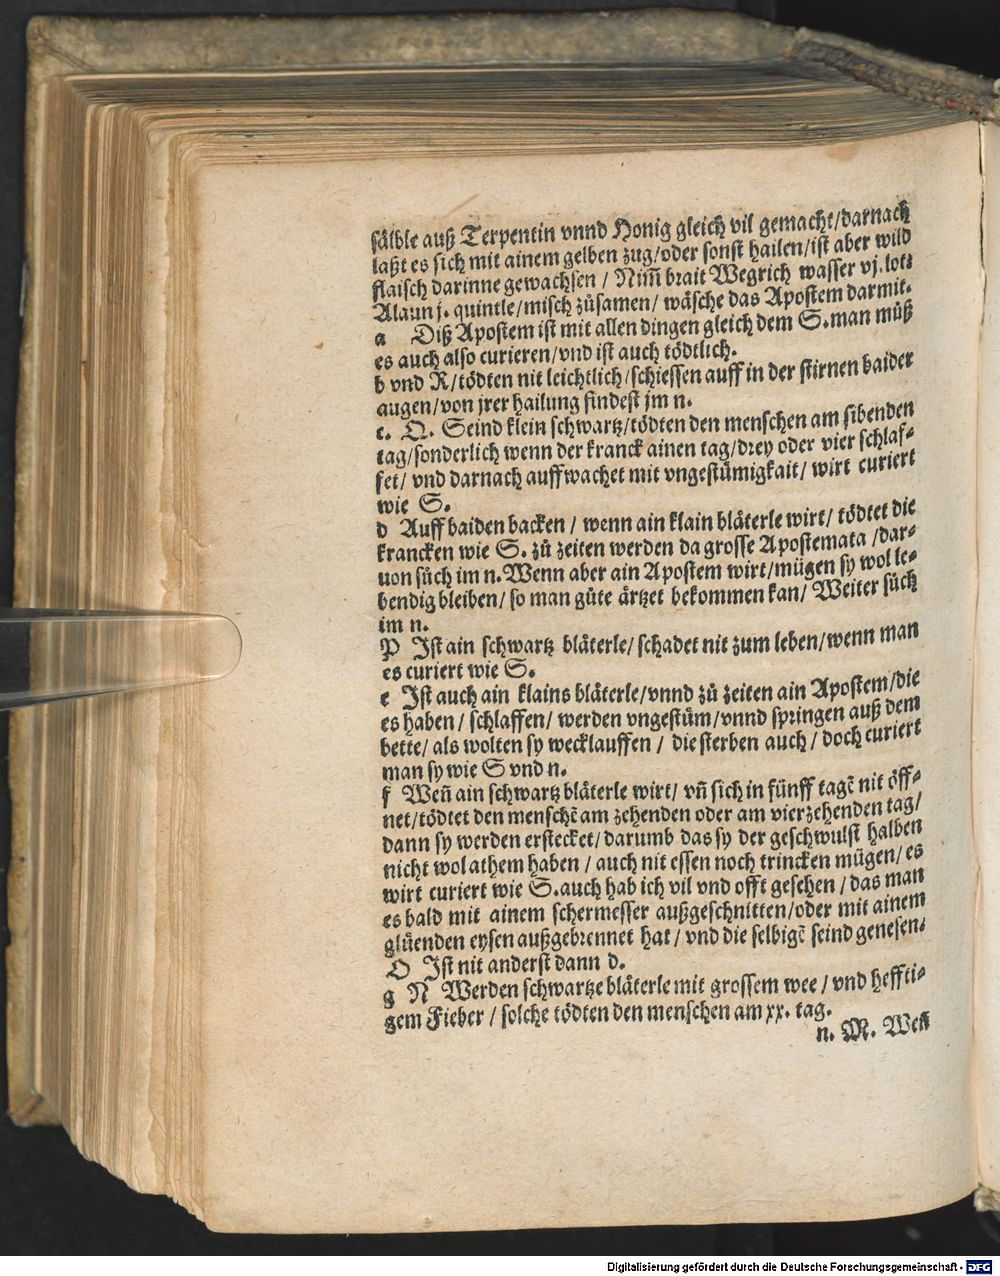 sälble auß Terpentin vnnd Honig gleich vil gemacht/darnach
laßt es sich mit ainem gelben zug/oder sonst hailen/ist aber wild
flaisch darinne gewachsen / Nim̃ brait Wegrich wasser vj. lot:
Alaun j. quintle/misch zůsamen/ wäsche das Apostem darmit.
a Diß Apostem ist mit allen dingen gleich dem S.man můß
es auch also curieren/vnd ist auch tödtlich.
b vnd R/tödten nit leichtlich/schiessen auff in der stirnen baider
augen/von jrer hailung findest jm n.
c. Q. Seind klein schwartz/tödten den menschen am sibenden
tag/sonderlich wenn der kranck ainen tag/drey oder vier schlaf-
fet/ vnd darnach auffwachet mit vngestümigkait/ wirt curiert
wie S.
d Auff baiden backen / wenn ain klain bläterle wirt/ tödtet die
krancken wie S. zů zeiten werden da grosse Apostemata /dar-
uon sůch im n. Wenn aber ain Apostem wirt/mügen sy wol le-
bendig bleiben/ so man gůte ärtzet bekommen kan/ Weiter sůch
im n.
P Ist ain schwartz bläterle/ schadet nit zum leben/wenn man
es curiert wie S.
e Ist auch ain klains bläterle/vnnd zů zeiten ain Apostem/die
es haben/ schlaffen/ werden vngestüm/vnnd springen auß dem
bette/ als wolten sy wecklauffen / die sterben auch / doch curiert
man sy wie S vnd n.
f Weñ ain schwartz bläterle wirt/ vñ sich in fünff tagẽ nit öff-
net/tödtet den menschẽ am zehenden oder am vierzehenden tag/
dann sy werden erstecket/darumb das sy der geschwulst halben
nicht wol athem haben / auch nit essen noch trincken mügen/ es
wirt curiert wie S.auch hab ich vil vnd offt gesehen / das man
es bald mit ainem schermesser außgeschnitten/oder mit ainem
glüenden eysen außgebrennet hat / vnd die selbigẽ seind genesen.
O Ist nit anderst dann d.
g N Werden schwartze bläterle mit grossem wee / vnd heffti-
gem Fieber / solche tödten den menschen am xx. tag.
n. M. Weñ
Digitalisierung gefördert durch die Deutsche Forschungsgemeinschaft - DFG